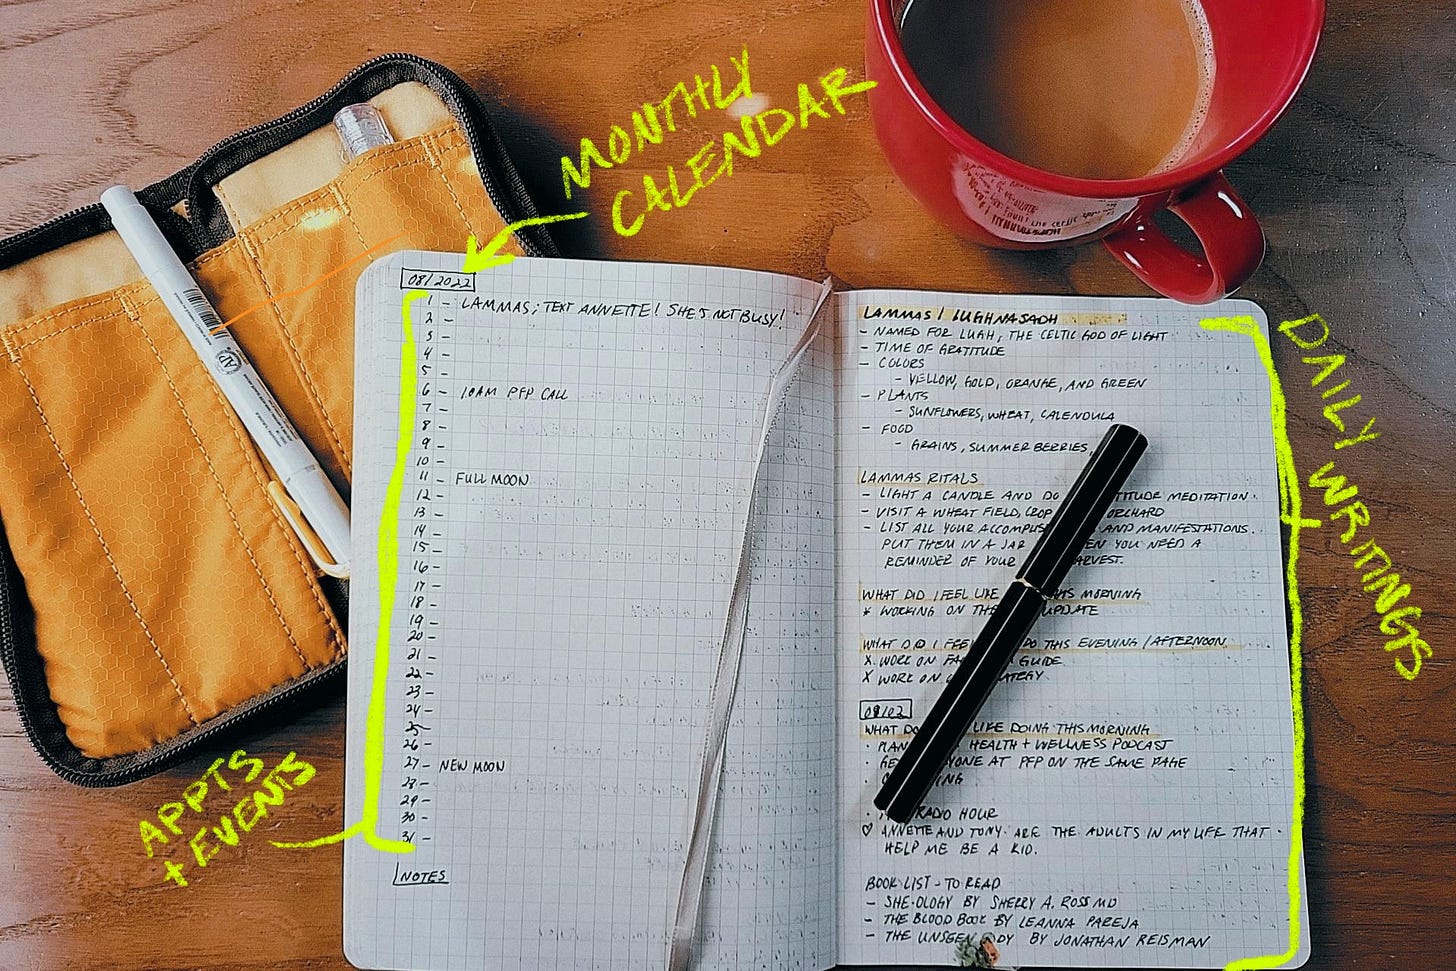 MONTHLY
CALENDAR
08/2022
1 - LAMMAS; TEXT ANNETTE! SHE'S NOT BUSY!
2 -
3 -
4 -
5 -
6 - 10AM PFP CALL
7 -
8 -
9 -
10 -
11 - FULL MOON
12 -
13 -
14 -
15 -
16 -
17 -
18 -
19 -
20 -
21 -
22 -
23 -
24 -
25 -
26 -
27 - NEW MOON
28 -
29 -
30 -
31 -
NOTES
APPTS
+ EVENTS
LAMMAS / LUGHNASADH
- NAMED FOR LUGH, THE CELTIC GOD OF LIGHT
- TIME OF GRATITUDE
- COLORS
- YELLOW, GOLD, ORANGE, AND GREEN
- PLANTS
- SUNFLOWERS, WHEAT, CALENDULA
- FOOD
- GRAINS, SUMMER BERRIES,
LAMMAS RITALS
- LIGHT A CANDLE AND DO TITUDE MEDITATION.
- VISIT A WHEAT FIELD, CROP ORCHARD
- LIST ALL YOUR ACCOMPLIS AND MANIFESTATIONS.
PUT THEM IN A JAR EN YOU NEED A
REMINDER OF YOUR HARVEST.
WHAT DID I FEEL LIKE THIS MORNING
* WORKING ON THE UPDATE
WHAT DID I FEEL DO THIS EVENING / AFTERNOON
X WORK ON FA GUIDE
X WORK ON
08/02
WHAT DO LIKE DOING THIS MORNING
· PLAN HEALTH + WELLNESS PODCAST
· GE YONE AT PFP ON THE SAME PAGE
· C NG
· RADIO HOUR
♡ ANNETTE AND TONY ARE THE ADULTS IN MY LIFE THAT
HELP ME BE A KID.
BOOK LIST - TO READ
- SHE-OLOGY BY SHERRY A. ROSS MD
- THE BLOOD BOOK BY LEANNA PAREJA
- THE UNSEEN BODY BY JONATHAN REISMAN
DAILY WRITINGS
AP